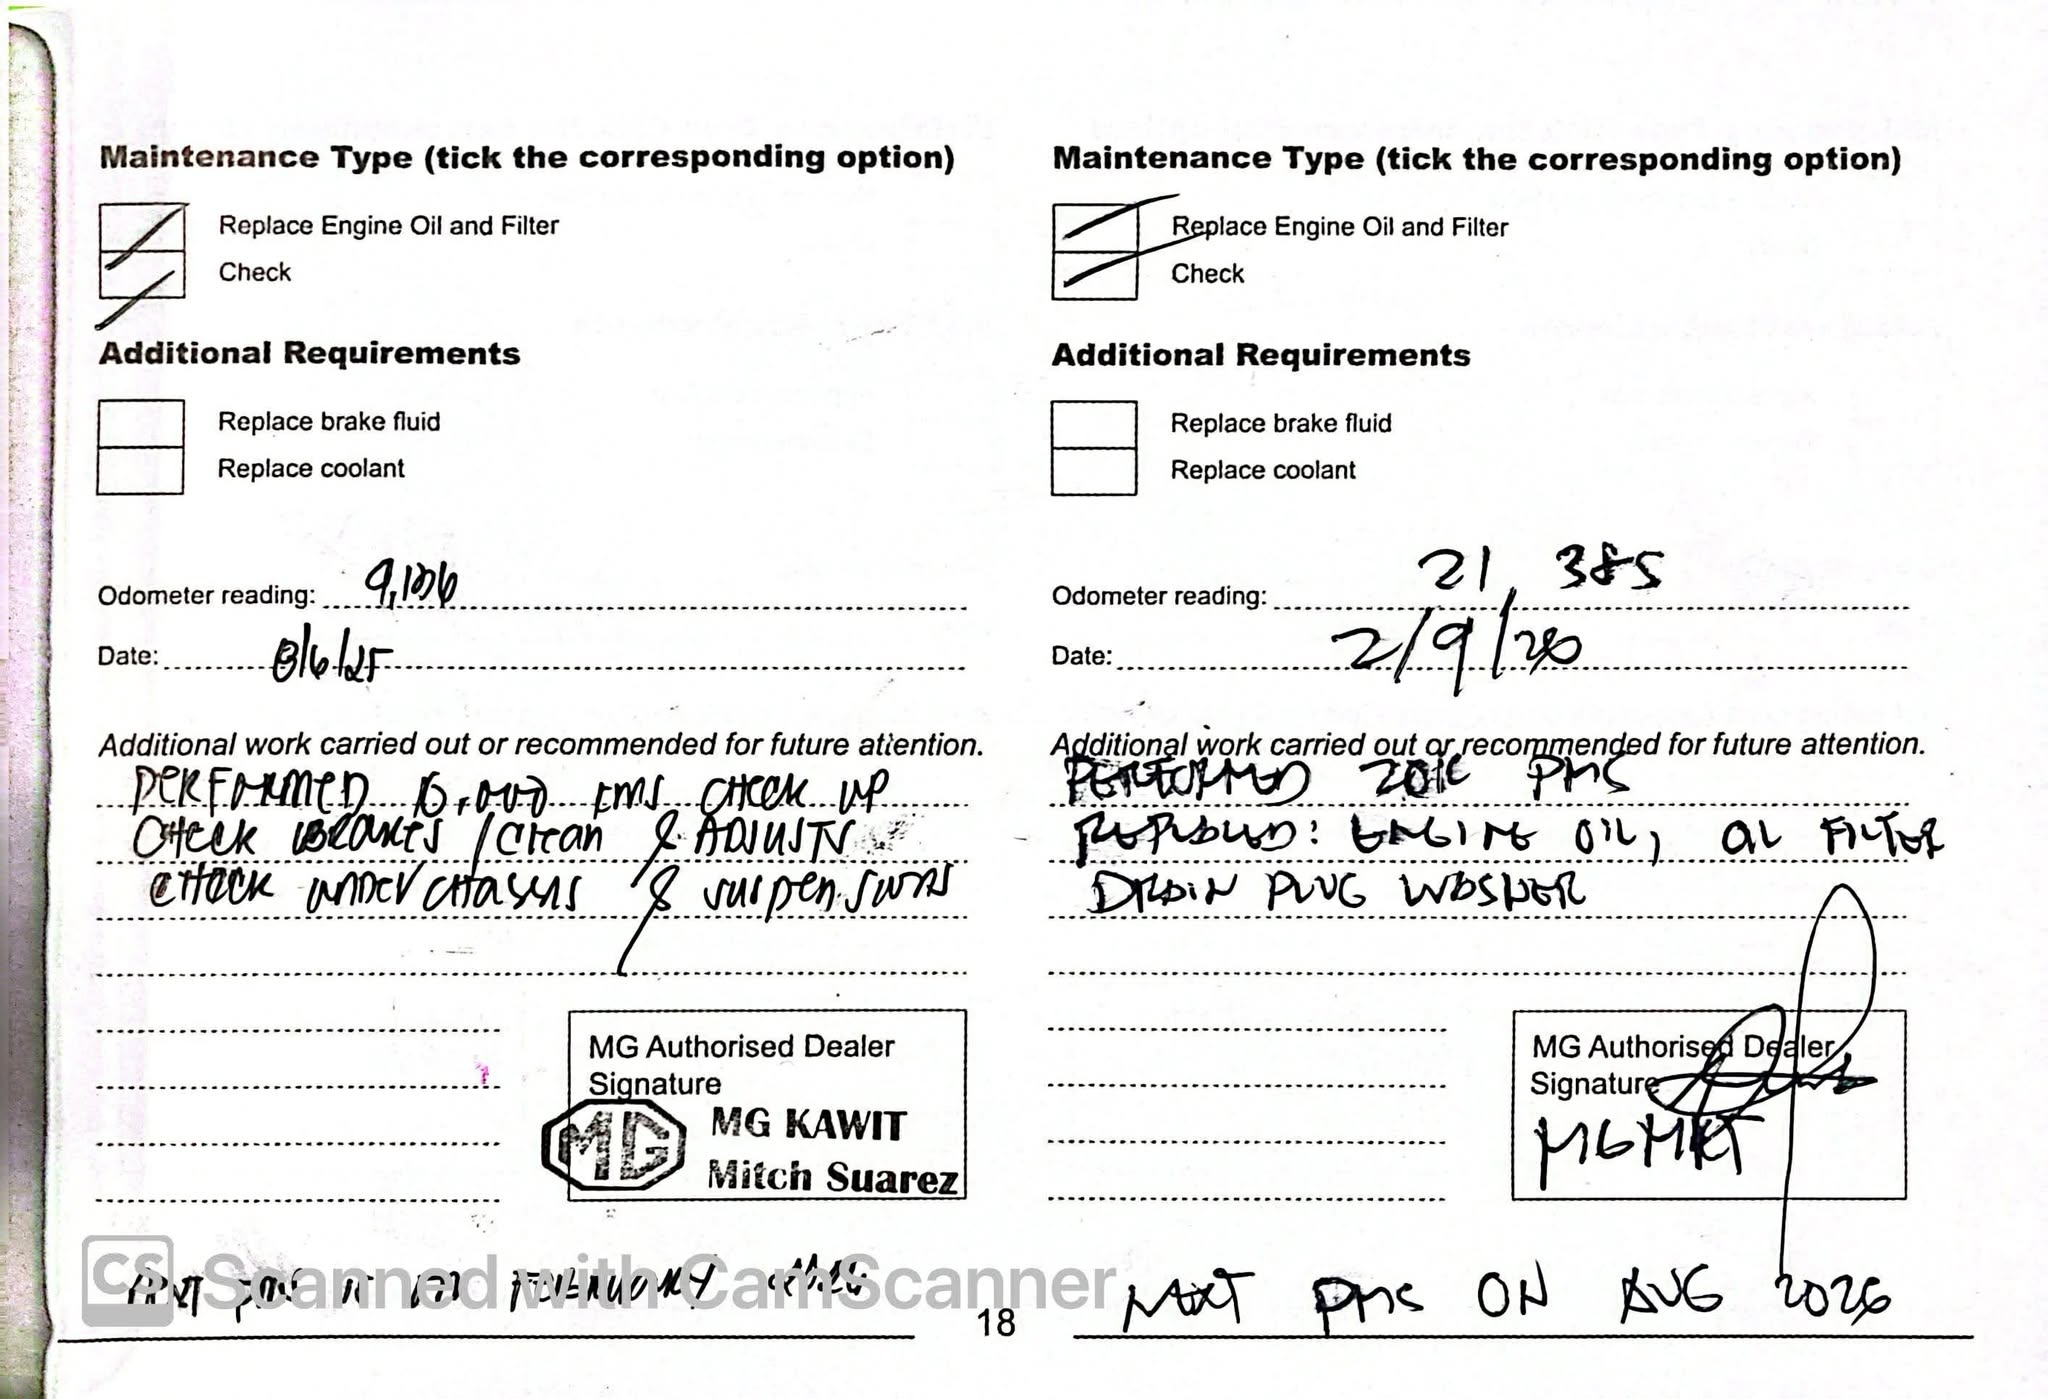 Maintenance Type (tick the corresponding option)
Replace Engine Oil and Filter
Check
Additional Requirements
Replace brake fluid
Replace coolant
Odometer reading:
Date: 8/6/25
Additional work carried out or recommended for future attention.
PERFORMED 10,000 KMS CHECK UP
CHECK BRAKES / CLEAN & ADJUSTS
CHECK UNDERCHASSIS & SUSPENSIONS
MG Authorised Dealer
Signature
MG
MG KAWIT
Mitch Suarez
NEXT PMS IS ON FEBRUARY
Maintenance Type (tick the corresponding option)
Replace Engine Oil and Filter
Check
Additional Requirements
Replace brake fluid
Replace coolant
Odometer reading: 21,385
Date: 2/9/26
Additional work carried out or recommended for future attention.
PERFORMED 20K PMS
REPLACED: ENGINE OIL, OIL FILTER
DRAIN PLUG WASHER
MG Authorised Dealer
Signature
MGMKT
NEXT PMS ON AUG 2026
18
CS Scanned with CamScanner